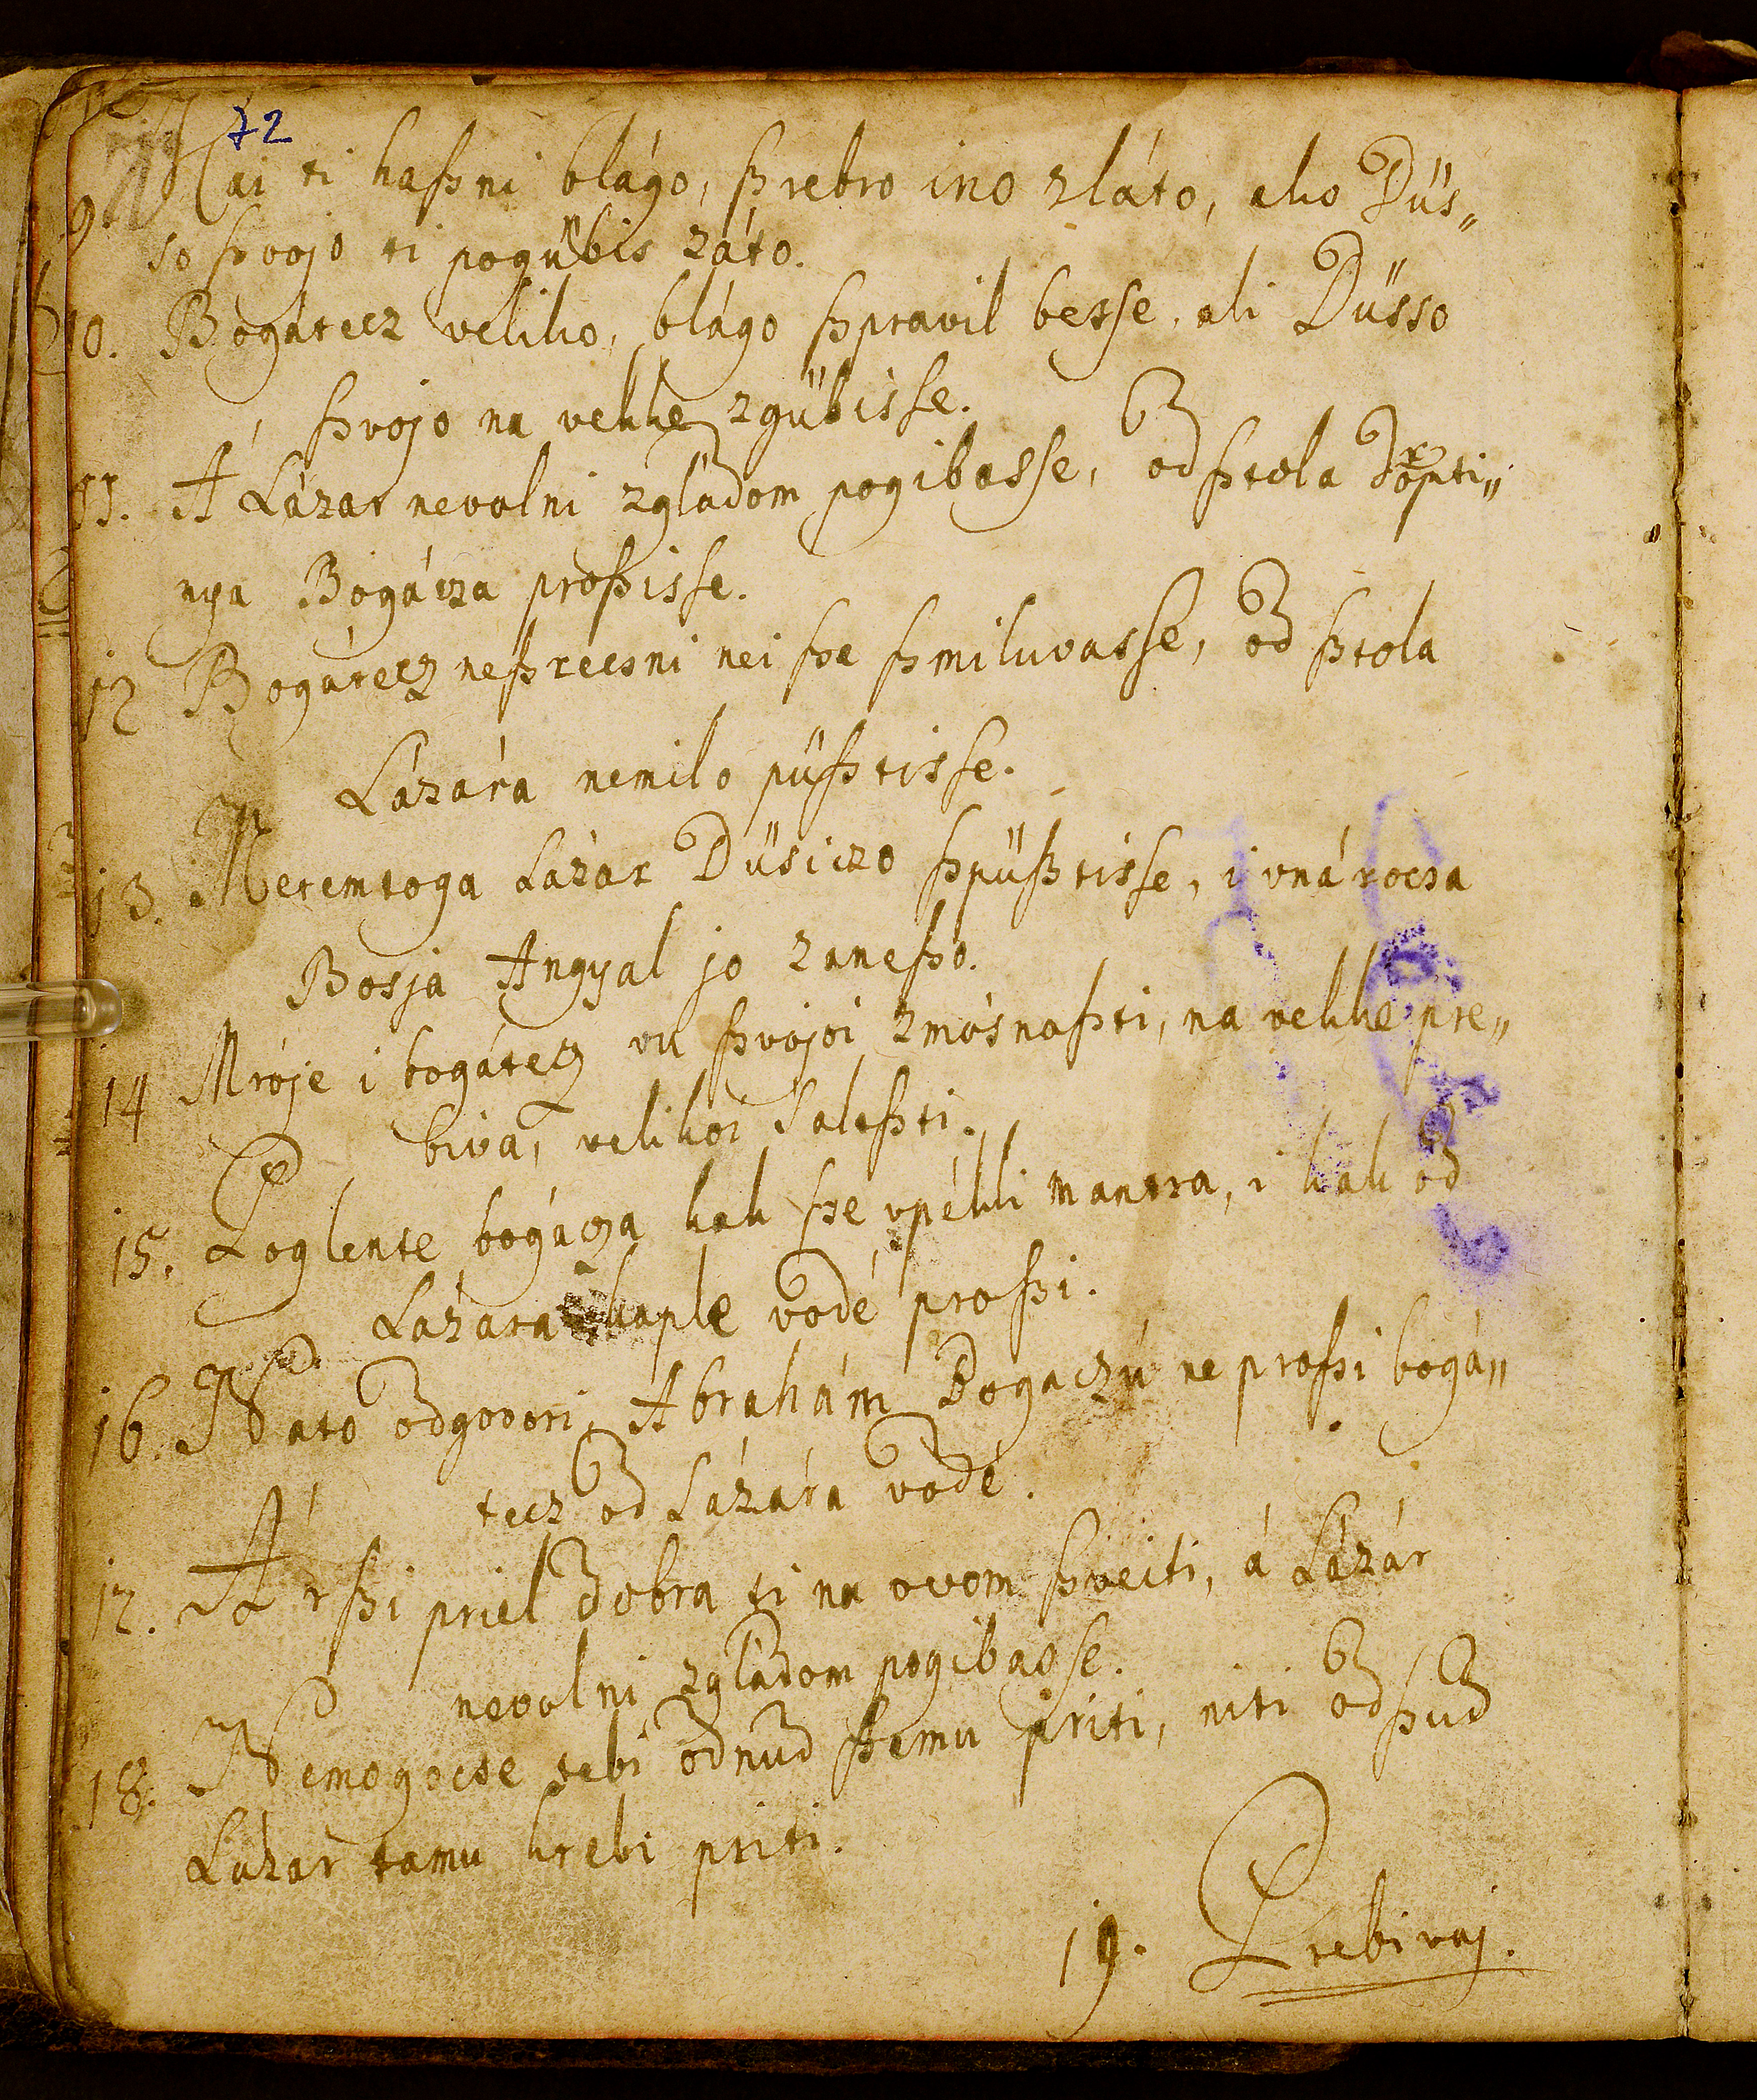 72
9. Kai ti haßni blágo, ßrebro ino zláto, ako Düs„
so ßvojo ti pogübis záto.
10. Bogátecz veliko, blágo ßpravil besse, ali Düsso
ßvojo na vekke zgübisse.
11. A Lázar nevolni zgládom pogibasse, od ßtola
nya Bogácza proßisse.
12 Bogátecz neßrecsni nei ße ßmiluvasse, od ßtola
Lázára nemilo püßtisse.
13. Metemtoga Lázár Düsiczo ßpüßtisse, i vnárocsa
Bosja Angyal jo zaneßo.
14 Mroje i bogátecz vu ßvojoi zmósnoßti, na vekke pre„
biva, velikoi saloßti.
15. Poglente bogácza kak ße vpékli mantra, i kak od
Lázara kaple vodé proßi.
16. Nato odgovori Abrahám Bogaczú ne proßi bogá„
tecz od Lázára vodé.
17. Ár ßi priel dobra ti na ovom ßveiti, á Lázár
nevolni zgládom pogibasse.
18. Nemogocse tebi odnud ßemu priti, niti odßud
Lázár tamu k tebi priti.
19. Prebivaj.